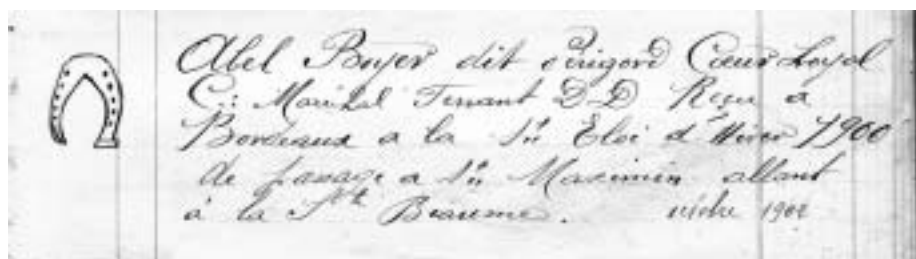 Abel Boyer dit Périgord Cœur Loyal
C∴ Maréchal Ferrant D D Reçu à
Bordeaux a la St Eloi d'Hiver 1900
de passage a St Maximin allant
à la Ste Beaume. 1902